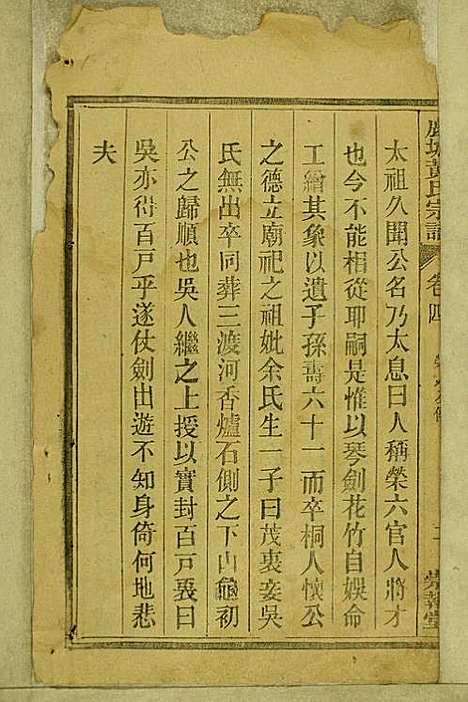 黃氏宗譜 卷四
太祖久聞公名乃太息曰人稱榮六官人將才
也今不能相從耶嗣是惟以琴劍花竹自娛命
工繪其象以遺子孫壽六十一而卒桐人懷公
之德立廟祀之祖妣余氏生一子曰茂裏妾吳
氏無出卒同葬三渡河香爐石側之下山龜初
公之歸順也吳人繼之上授以實封百戸裏曰
吳亦得百戸乎遂仗劍出遊不知身倚何地悲
夫